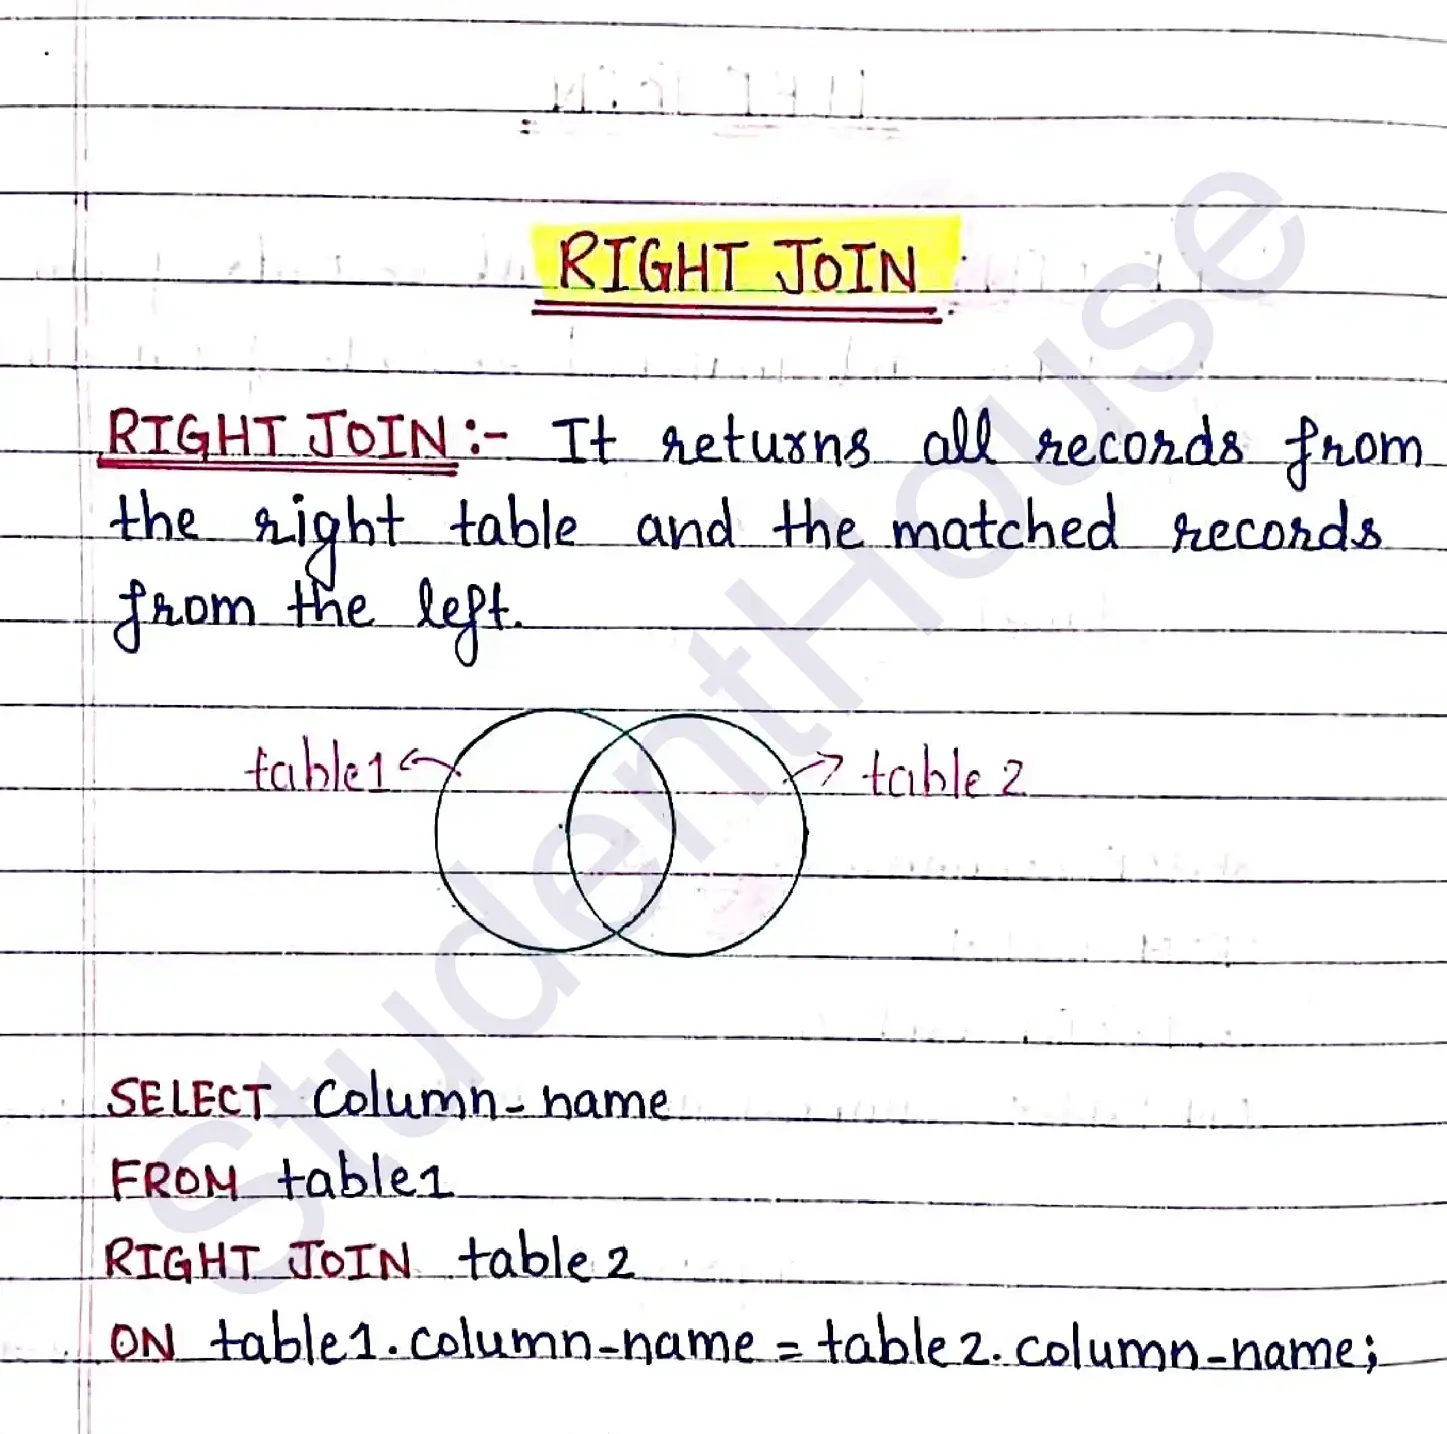 RIGHT JOIN
RIGHT JOIN:- It returns all records from
the right table and the matched records
from the left.
table1
table 2
SELECT Column-name
FROM table1
RIGHT JOIN table 2
ON table1.column-name = table2.column-name;
StudentHouse